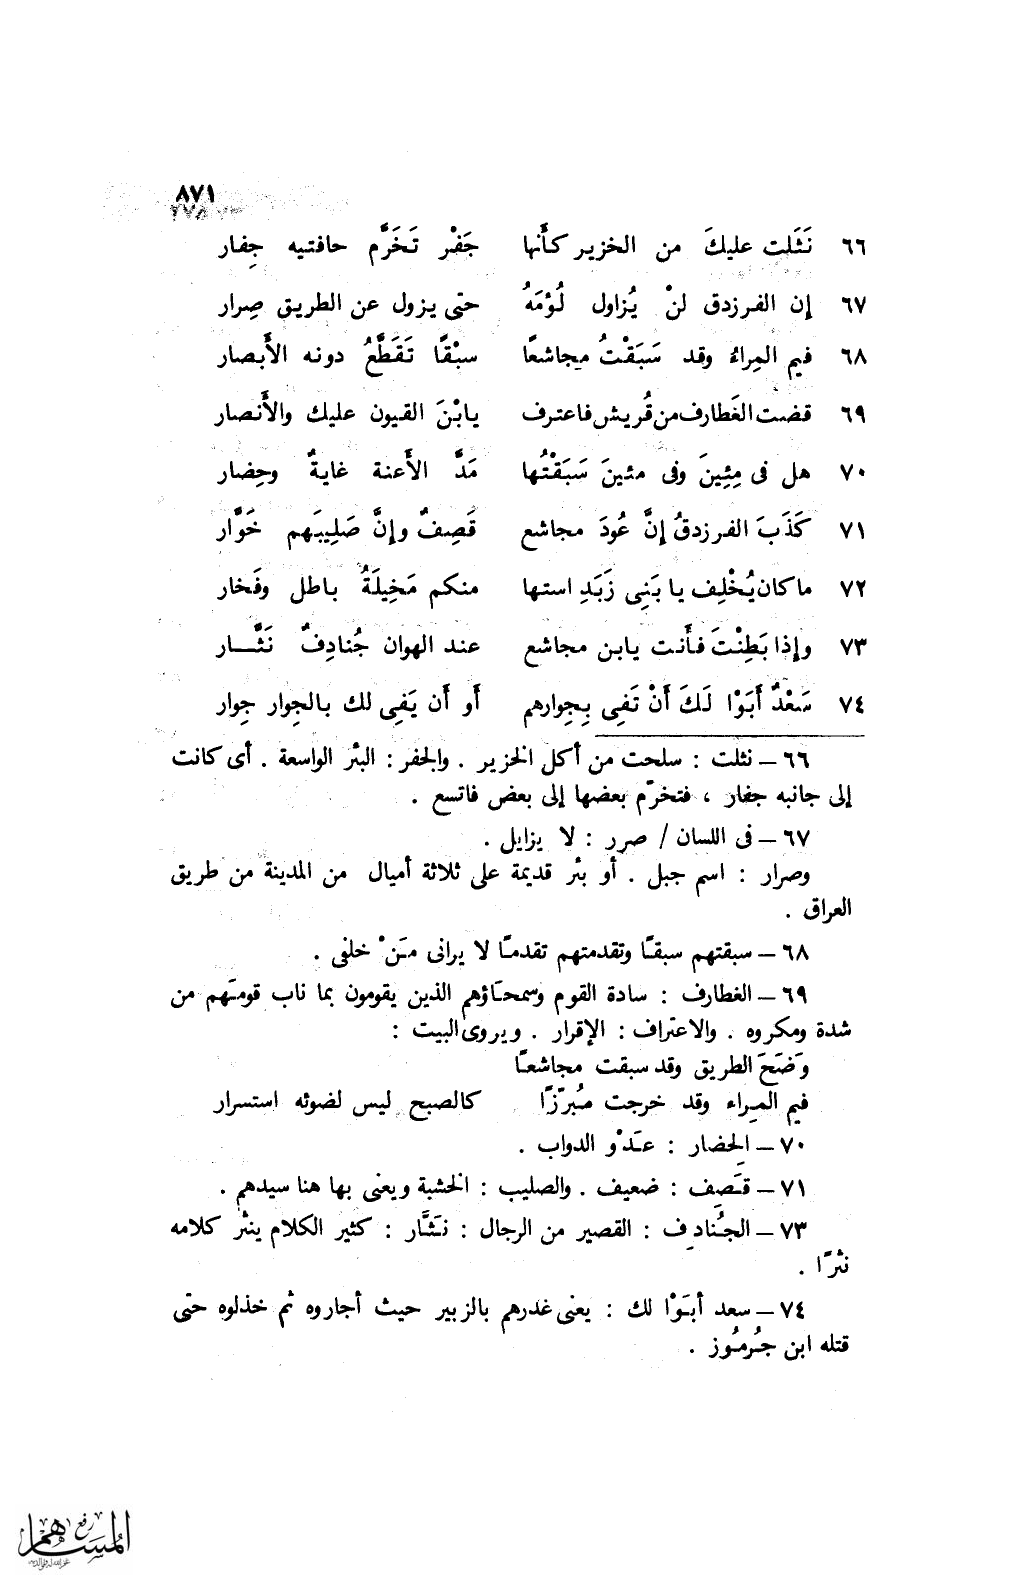 ٨٧١
٦٦ نَثَلَت عليكَ من الخزير كأَنها جَفْر تَخَرَّم حافتيه جِفار
٦٧ إن الفرزدق لنْ يُزاول لُؤمَهُ حتى يزول عن الطريق صِرار
٦٨ فيم المِراءُ وقد سَبَقْتُ مجاشعًا سبْقًا تَقَطَّعُ دونه الأَبصار
٦٩ قضت الغَطارف من قُريش فاعترف يابْنَ القيون عليك والأَنصار
٧٠ هل فى مِئِينَ وفى مئينَ سَبَقْتُها مَدَّ الأَعنة غايةٌ وحِضار
٧١ كَذَبَ الفرزدقُ إنَّ عُودَ مجاشع قَصِفٌ وإنَّ صَلِيبَهم خَوَّار
٧٢ ما كان يُخْلِف يا بَنِى زَبَدِ استها منكم مَخِيلَةُ باطل وفَخار
٧٣ وإذا بَطِنْتَ فأَنت يابن مجاشع عند الهوان جُنادِفٌ نَثَّــار
٧٤ سَعْدٌ أَبَوْا لَكَ أَنْ تَفِى بِجوارهم أَو أَن يَفِى لك بالجِوار جِوار
٦٦ – نثلت : سلحت من أكل الخزير . والجفر : البئر الواسعة . أى كانت
إلى جانبه جفار ، فتخرّم بعضها إلى بعض فاتسع .
٦٧ – فى اللسان / صرر : لا يزايل .
وصرار : اسم جبل . أو بئر قديمة على ثلاثة أميال من المدينة من طريق
العراق .
٦٨ – سبقتهم سبقًا وتقدمتهم تقدمًا لا يرانى مَنْ خلفى .
٦٩ – الغطارف : سادة القوم وسمحاؤهم الذين يقومون بما ناب قومَهم من
شدة ومكروه . والاعتراف : الإقرار . ويروى البيت :
وَضَحَ الطريق وقد سبقت مجاشعًا
فيم المِراء وقد خرجت مُبرّزًا كالصبح ليس لضوئه استسرار
٧٠ – الحِضار : عَدْو الدواب .
٧١ – قَصِف : ضعيف . والصليب : الخشبة ويعنى بها هنا سيدهم .
٧٣ – الجُنادِف : القصير من الرجال : نَثَّار : كثير الكلام ينثر كلامه
نثرًا .
٧٤ – سعد أبَوْا لك : يعنى غدرهم بالزبير حيث أجاروه ثم خذلوه حتى
قتله ابن جُرمُوز .
رفع
المساهم